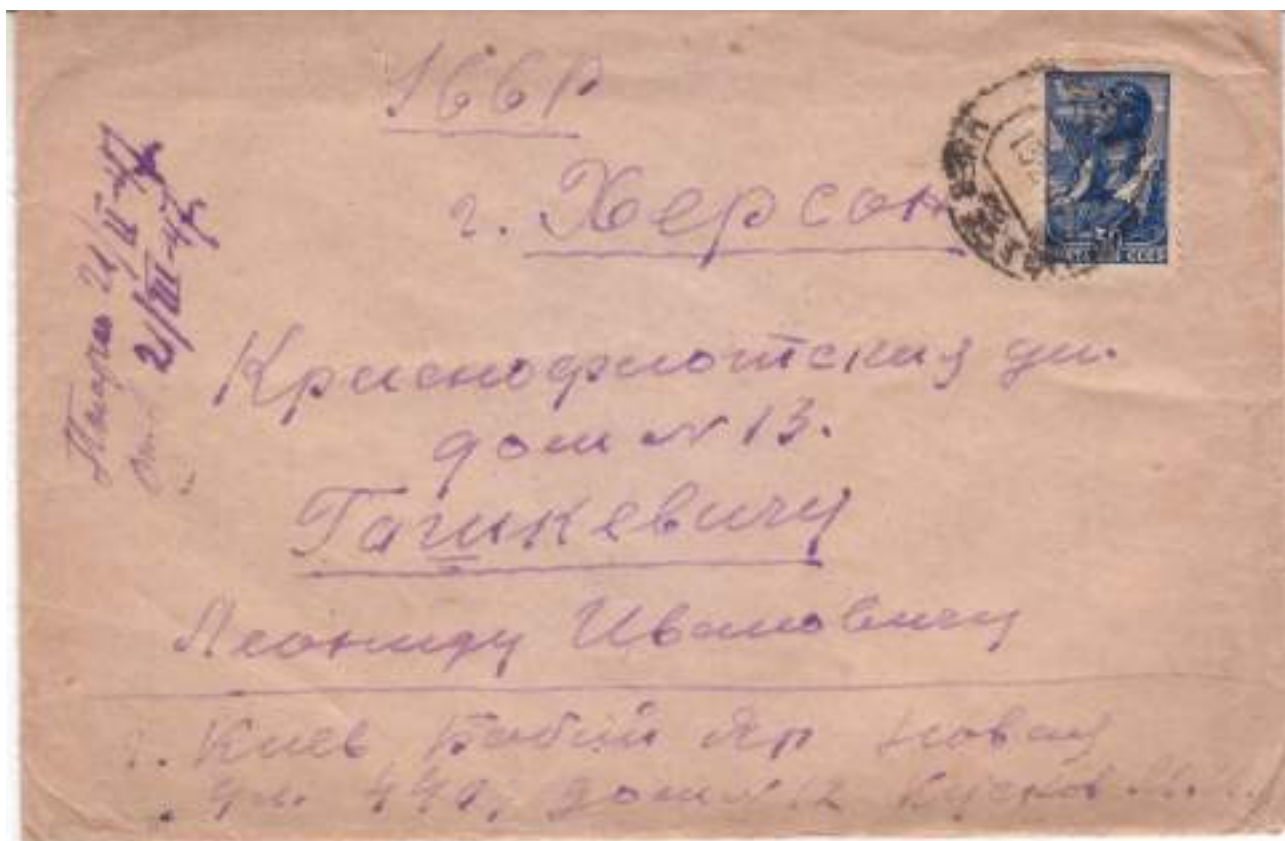 УССР
г. Херсон
Краснофлотская ул.
дом № 13.
Гашкевичу
Леониду Ивановичу
г. Киев Бабий Яр Новая
ул. 440, дом № 12 Кусков
21/II-47
21/III-47
30
ПОЧТА СССР